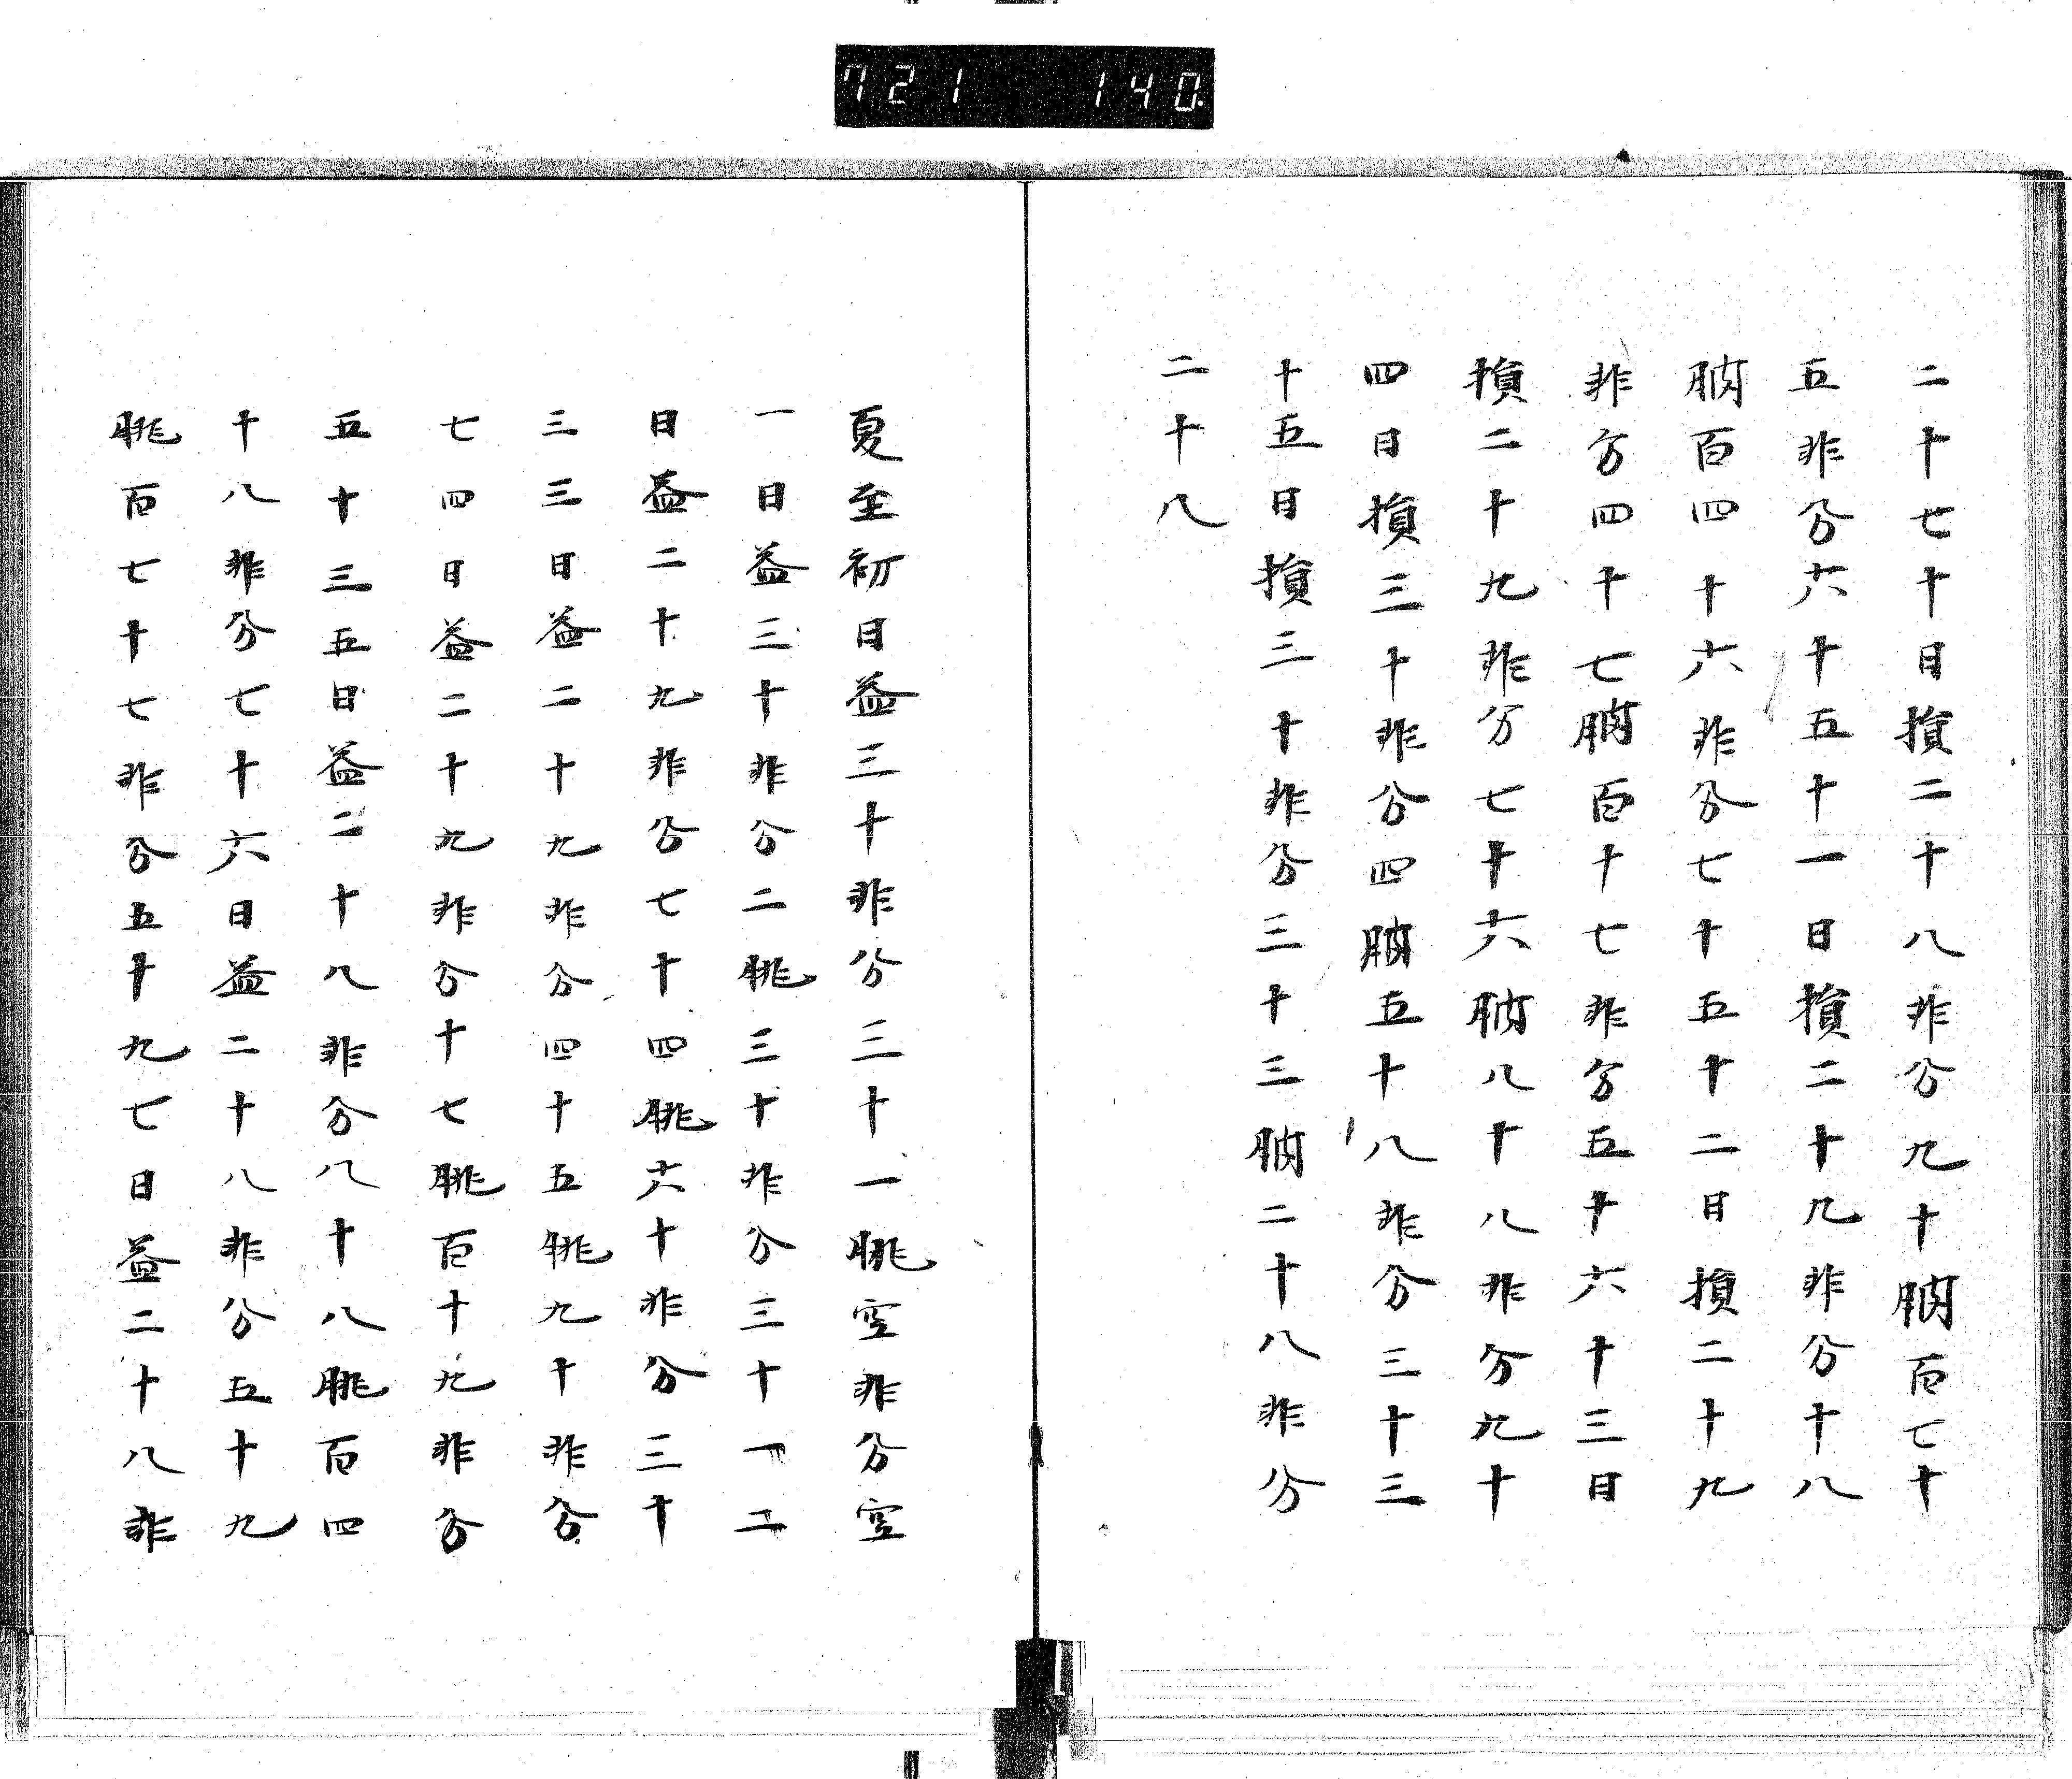 721 140.
二十七十日損二十八非分九十朒百七十
五非分六十五十一日損二十九非分十八
朒百四十六非分七十五十二日損二十九
非分四十七朒百十七非分五十六十三日
損二十九非分七十六朒八十八非分九十
四日損三十非分四朒五十八非分三十三
十五日損三十非分三十三朒二十八非分
二十八
夏至初日益三十非分三十一朓空非分空
一日益三十非分二朓三十非分三十一二
日益二十九非分七十四朓六十非分三十
三三日益二十九非分四十五朓九十非分
七四日益二十九非分十七朓百十九非分
五十三五日益二十八非分八十八朓百四
十八非分七十六日益二十八非分五十九
朓百七十七非分五十九七日益二十八非